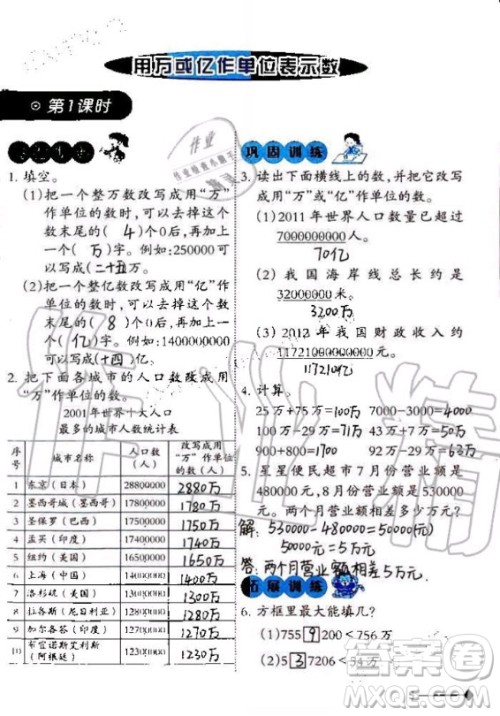 用万或亿作单位表示数
第1课时
1. 填空。
(1)把一个整万数改写成用“万”
作单位的数时,可以去掉这个
数末尾的(4)个0后,再加上一
个(万)字。例如:250000可
以写成(二十五)万。
(2)把一个整亿数改写成用“亿”作
单位的数时,可以去掉这个数
末尾的(8)个0后,再加上一个
(亿)字。例如:1400000000
可以写成(十四)亿。
2. 把下面各城市的人口数改成用
“万”作单位的数。
2001年世界十大人口
最多的城市人数统计表
序号 城市名称 人口数(人) 改写成用“万”作单位的数(人)
1 东京(日本) 28800000 2880万
2 墨西哥城(墨西哥) 17800000 1780万
3 圣保罗(巴西) 17500000 1750万
4 孟买(印度) 17400000 1740万
5 纽约(美国) 16500000 1650万
6 上海(中国) 14000000 1400万
7 洛杉矶(美国) 13000000 1300万
8 拉各斯(尼日利亚) 12800000 1280万
9 加尔各答(印度) 12700000 1270万
10 布宜诺斯艾利斯(阿根廷) 12300000 1230万
巩固训练
3. 读出下面横线上的数,并把它改写
成用“万”或“亿”作单位的数。
(1)2011年世界人口数量已超过
7000000000人。
70亿
(2)我国海岸线总长大于
32000000米。
3200万
(3)2012年我国财政收入约
1172100000000元。
11721亿
4. 计算。
25万+75万=100万 7000-3000=4000
100万-29万=71万
900+800=1700 92万-29万=63万
5. 星星便民超市7月份营业额是
480000元,8月份营业额是530000
元。两个月营业额相差多少万元?
解:530000-480000=50000(元)
50000元=5万元
答:两个月营业额相差5万元。
拓展训练
6. 方框里最大能填几?
(1)755 9 200<756万
(2)5 3 7206<54万
答案卷
MXQE.COM
作业精